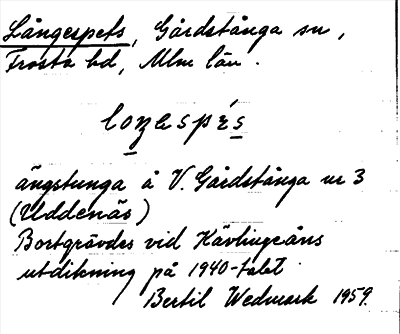 Långespets, Gårdstånga sn,
Frosta hd, Mlm län.
loŋaspɛ́s
ängstunga å V. Gårdstånga nr 3
(Uddenäs)
Bortgrävdes vid Kävlingeåns
utdikning på 1940-talet
Bertil Wedmark 1959.